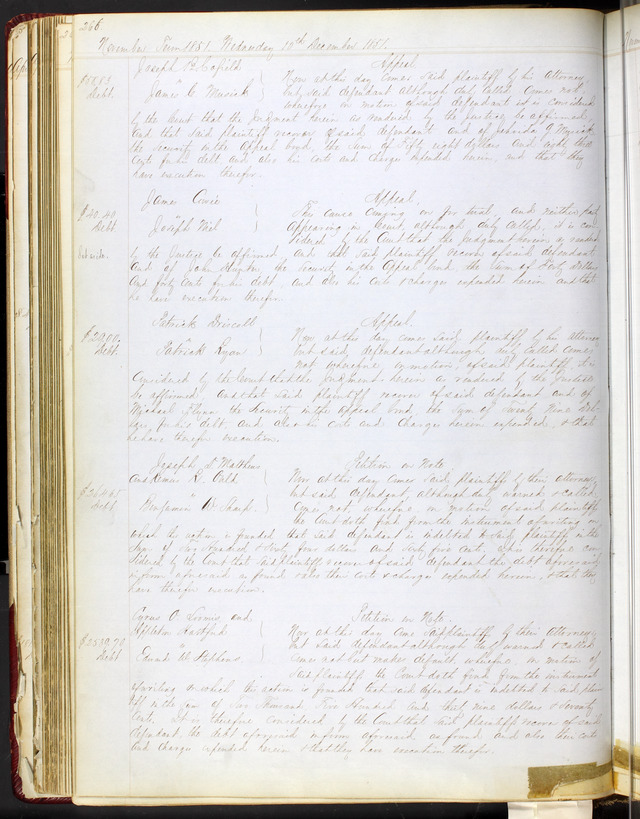 266.
November Term 1851. Wednesday 10th December 1851.
Joseph Cofield Appeal
$58.83 Debt. James C Musick Now at this day comes said plaintiff by his Attorney
but said defendant although duly called comes not
wherefore on motion of said defendant it is considered
by the Court that the Judgment herein as rendered by the Justice be affirmed
And that said plaintiff recover of said defendant and of J Musick
the security in the Appeal bond, the sum of Fifty eight dollars and eighty three
Cents for his debt and also his costs and charges expended herein, and that they
have execution therefor.
James Appeal.
$40.40 Debt Joseph This cause coming on for trial and neither party
appearing in Court, although duly called, it is con
sidered by the Court that the Judgment herein as rendered
by the Justice be affirmed and that said plaintiff recover of said defendant
And of John the security in the Appeal bond, the sum of Forty Dollars
and forty Cents for his debt, and also his costs & charges expended herein and that
he have execution therefor.
Patrick Driscoll Appeal.
$29.00 Debt. Patrick Ryan Now at this day comes said plaintiff by his attorney
but said defendant although duly called comes
not wherefore on motion of said plaintiff it is
Considered by the Court that the Judgment herein as rendered by the Justice
be affirmed And that said plaintiff recover of said defendant and of
Michael Flynn the Security in the Appeal bond, the sum of Twenty Nine Dol
lars, for his debt and also his costs and Charges herein expended, & that
he have therefor execution.
Joseph Matthews Petition on Note
and
Debt Benjamin W Sharp. Now at this day comes said plaintiffs by their attorney
but said defendant, although duly warned & called
comes not, wherefore on motion of said plaintiffs
the Court doth find from the instrument of writing on
which the action is founded that said defendant is indebted to said plaintiffs in the
sum of Two Hundred & Sixty four dollars and Sixty five cents, It is therefore con
sidered by the Court that said plaintiffs recover of said defendant the debt aforesaid
in form aforesaid as found and also their costs & charges expended herein, & that they
have therefor execution.
Cyrus O and Petition on Note.
Appleton
$2539.70 Debt W Stephens. Now at this day came said plaintiffs by their attorney
but said defendant although duly warned & called
came not but makes default wherefore, on motion of
said plaintiffs the Court doth find from the instrument
of writing on which the action is founded that said defendant is indebted to said plain
tiffs in the sum of Two thousand Five Hundred and thirty nine dollars & Seventy
Cents. It is therefore considered by the Court that said plaintiffs recover of said
defendant, the debt aforesaid in form aforesaid as found and also their costs
and charges expended herein & that they have execution therefor.